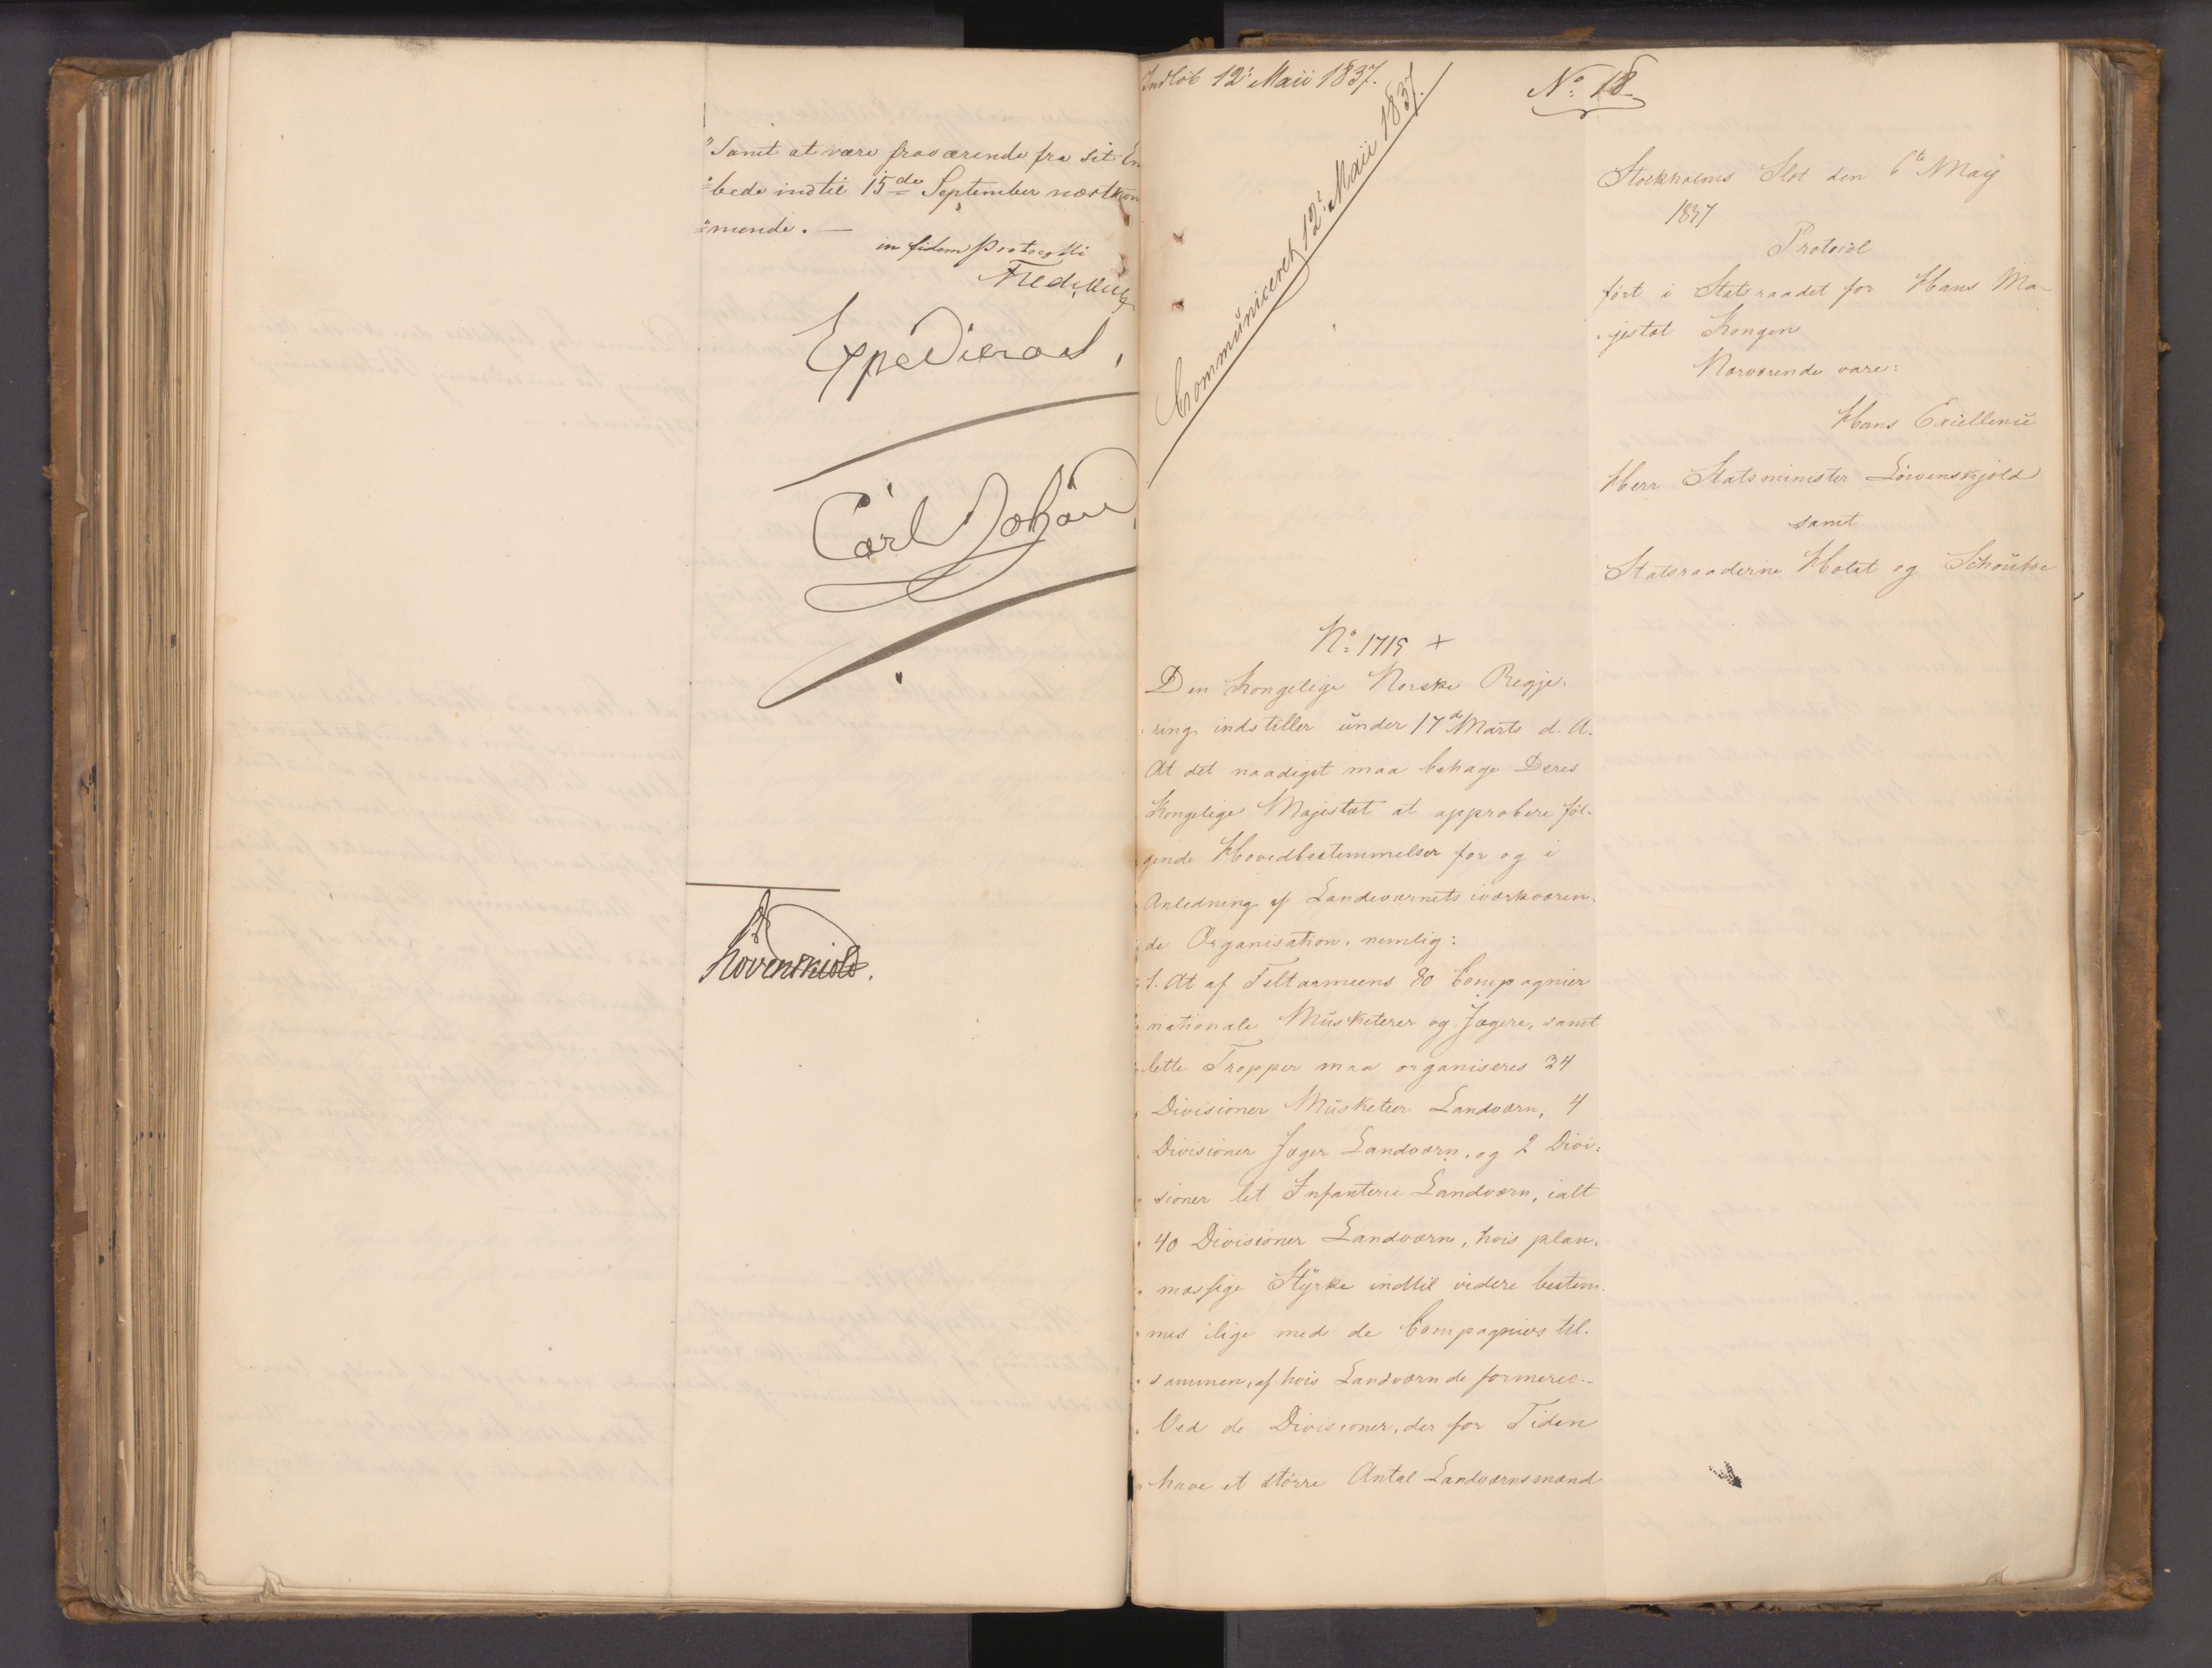 "Samt at være fraværende fra sit Em
"bede indtil 15de September næstkom
"mende. —
in fidem Protocolli
Expederes,
Carl Johan
Løvenskiold.
Indløb 12: Maii 1837.
Communiceret 12: Maii 1837.
No: 18.
Stockholms Slot den 6te Maÿ
1837
Protocol
ført i Statsraadet for Hans Ma-
jestæt Kongen
Nærværende vare:
Hans Excellence
Herr Statsminister Löwenskjold
samt
Statsraaderne Holst og Schouboe
No: 1719 +
Den Kongelige Norske Regje-
ring indstiller under 17de Marts d. A.
At det naadigst maa behage Deres
Kongelige Majestæt at approbere föl-
gende Hovedbestemmelser for og i
Anledning af Landeværnets iværkværen-
de Organisation, nemlig:
1. At af Feltarmeens 80 Compagnier
nationale Musketerer og Jægere, samt
lette Tropper maa organiseres 34
Divisioner Musketeer Landværn, 4
Divisioner Jæger Landværn, og 2 Divi-
sioner let Infanterie Landværn, ialt
40 Divisioner Landværn, hvis plan-
mæssige Stÿrke indtil videre bestem-
mes lige med de Compagniers til-
sammen, af hvis Landværn de formeres.-
Ved de Divisioner, der for Tiden
have et större Antal Landværnsmænd